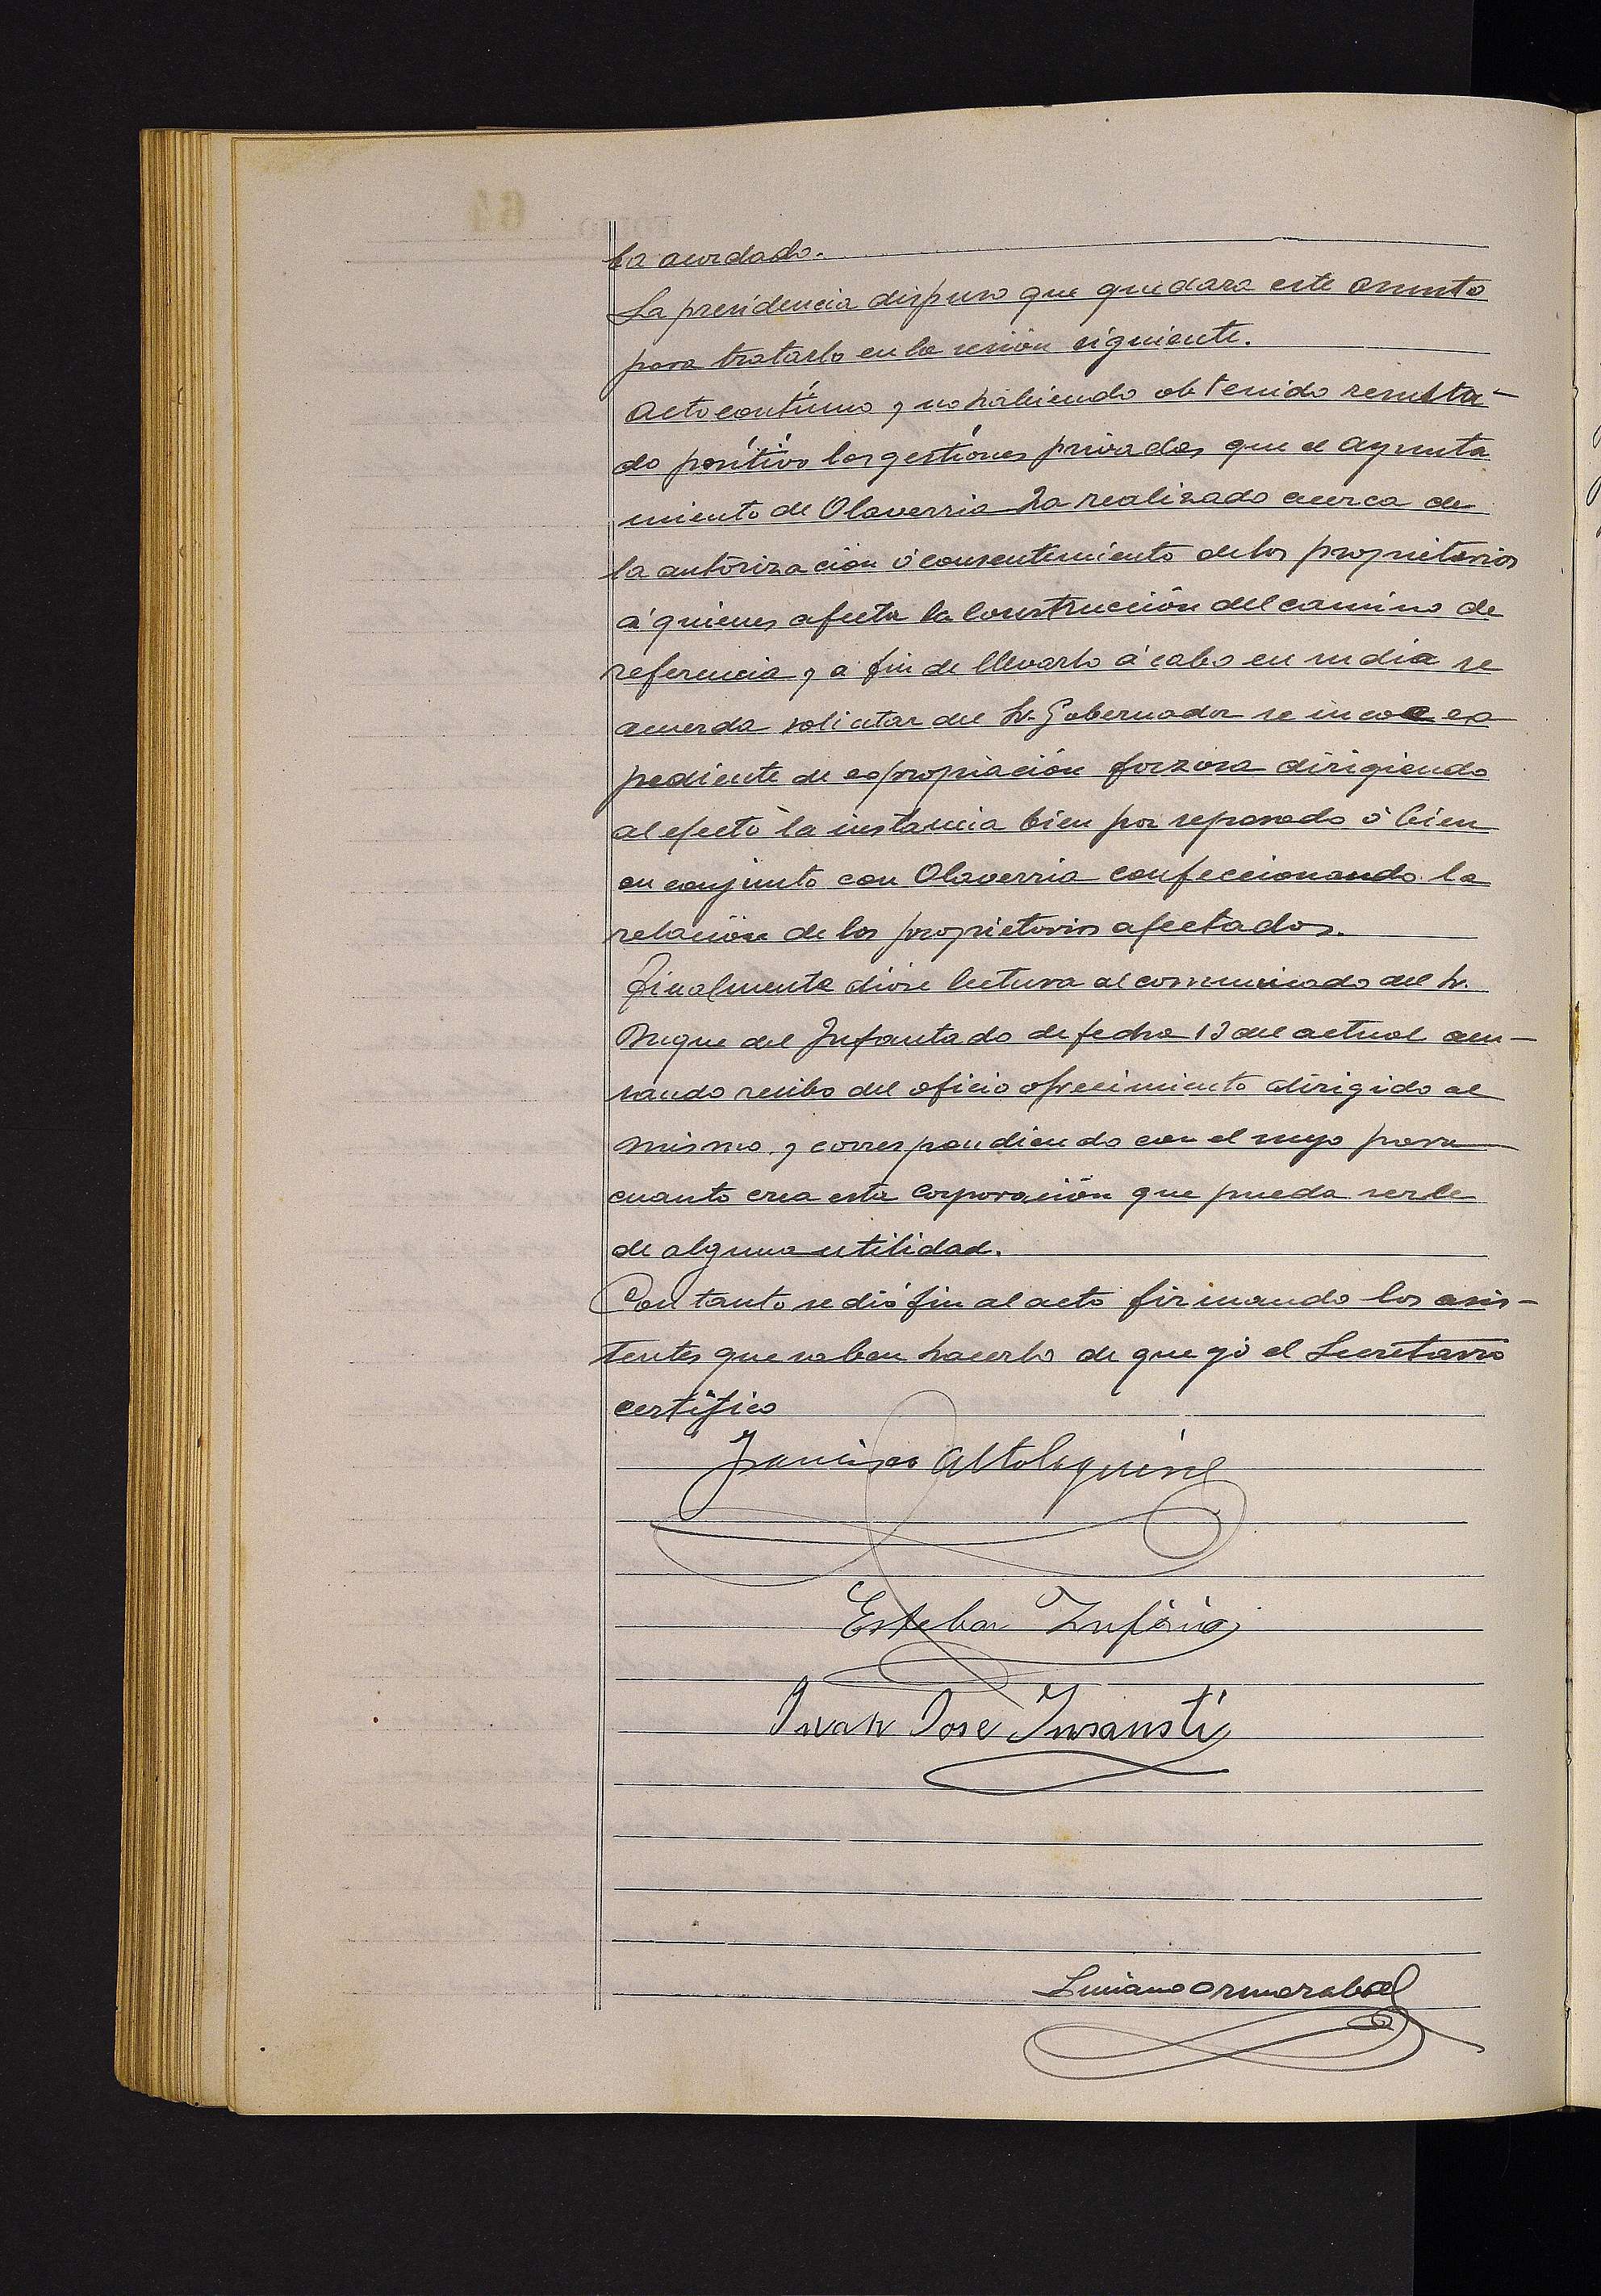 ta acordado.
La presidencia dispuso que quedara este asunto
para tratarlo en la sesión siguiente.
Acto contínuo y no habiendo obtenido resulta-
do positivo las gestiones privadas que el Ayunta
miento de Olaverria ha realizado acerca de
la autorización ó consentimiento de los propietarios
á quienes afecta la construcción del camino de
referencia y a fin de llevarlo á cabo en su dia se
acuerda solicitar del Sr. Gobernador se incoe ex
pediente de expropiación forzosa dirigiendo
al efecto la instancia bien por separado ó bien
en conjunto con Olaverria confeccionando la
relación de los propietarios afectados.
Finalmente dióse lectura al comunicado del Sr.
Duque del Infantado de fecha 13 del actual acu-
sando recibo del oficio ofrecimiento dirigido al
mismo y correspondiendo con el suyo para
cuanto crea esta Corporación que pueda serle
de alguna utilidad.
Con tanto se dió fin al acto firmando los asis-
tentes que saben hacerlo de que yo el Secretario
certifico
Francisco Altolaguirre
Esteban
Juan Jose Insausti
Luciano